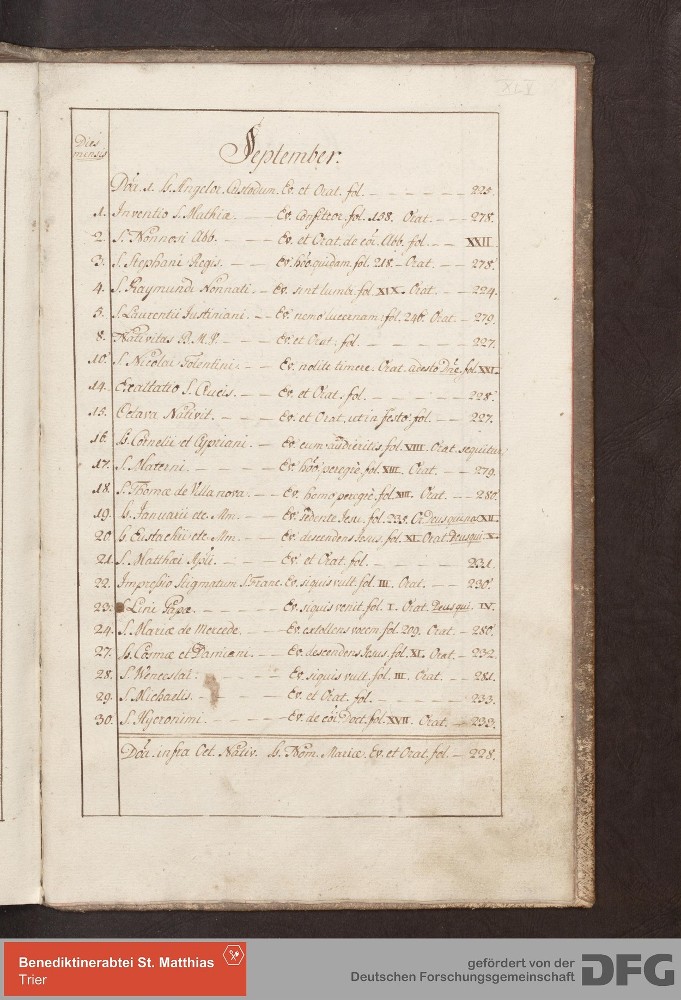 XLV
September.
Dies
mensis
Dõa. 1. SS. Angelor. Custodum. Ev. et Orat. fol. 225.
1. Inventio S. Mathiæ. Ev. Confiteor. fol. 158. Orat. 278.
2. S. Nonnosi Abb. Ev. et Orat. de cõi. Abb. fol. XXII.
3. S. Stephani Regis. Ev. hõo. quidam. fol. 218. Orat. 278.
4. S. Raymundi Nonnati. Ev. sint lumbi. fol. XIX. Orat. 224.
5. S. Laurentii Justiniani. Ev. nemo lucernam. fol. 246. Orat. 279.
8. Nativitas B. M. V. Ev. et Orat. fol. 227.
10. S. Nicolai Tolentini. Ev. nolite timere. Orat. adesto Dñe. fol. XXI.
14. Exaltatio S. Crucis. Ev. et Orat. fol. 228.
15. Octava Nativit. Ev. et Orat. ut in festo. fol. 227.
16. SS. Cornelii et Cypriani. Ev. cum audieritis. fol. XIII. Orat. sequitur.
17. S. Materni. Ev. hõo. peregrè. fol. XIII. Orat. 279.
18. S. Thomæ de Villanova. Ev. homo peregrè. fol. XIII. Orat. 280.
19. SS. Januarii etc. Mm. Ev. Sedente Jesu. fol. 235. Or. Deus qui nos XII.
20. SS. Eustachii etc. Mm. Ev. descendens Jesus. fol. XI. Orat. Deus qui. X.
21. S. Matthæi Apli. Ev. et Orat. fol. 231.
22. Impressio Stigmatum S. Franc. Ev. si quis vult. fol. III. Orat. 230.
23. S. Lini Papæ. Ev. si quis venit. fol. I. Orat. Deus qui. IV.
24. S. Mariæ de Mercede. Ev. extollens vocem. fol. 209. Orat. 280.
27. SS. Cosmæ et Damiani. Ev. descendens Jesus. fol. XI. Orat. 232.
28. S. Wenceslai. Ev. si quis vult. fol. III. Orat. 281.
29. S. Michaelis. Ev. et Orat. fol. 233.
30. S. Hyeronimi. Ev. de cõi. Doct. fol. XVII. Orat. 233.
Dõa. infra Oct. Nativ. SS. Nom. Mariæ. Ev. et Orat. fol. 228.
Benediktinerabtei St. Matthias
Trier
gefördert von der
Deutschen Forschungsgemeinschaft
DFG